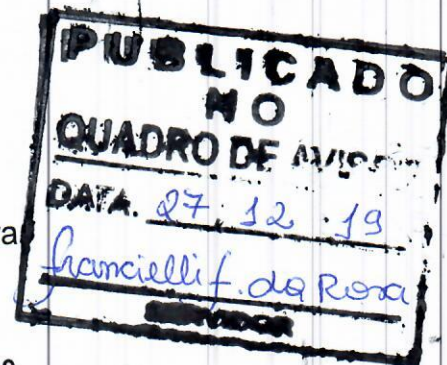 PUBLICADO
NO
QUADRO DE
DATA. 27 12 19
va
francielli f. da Rosa
SERVIDOR